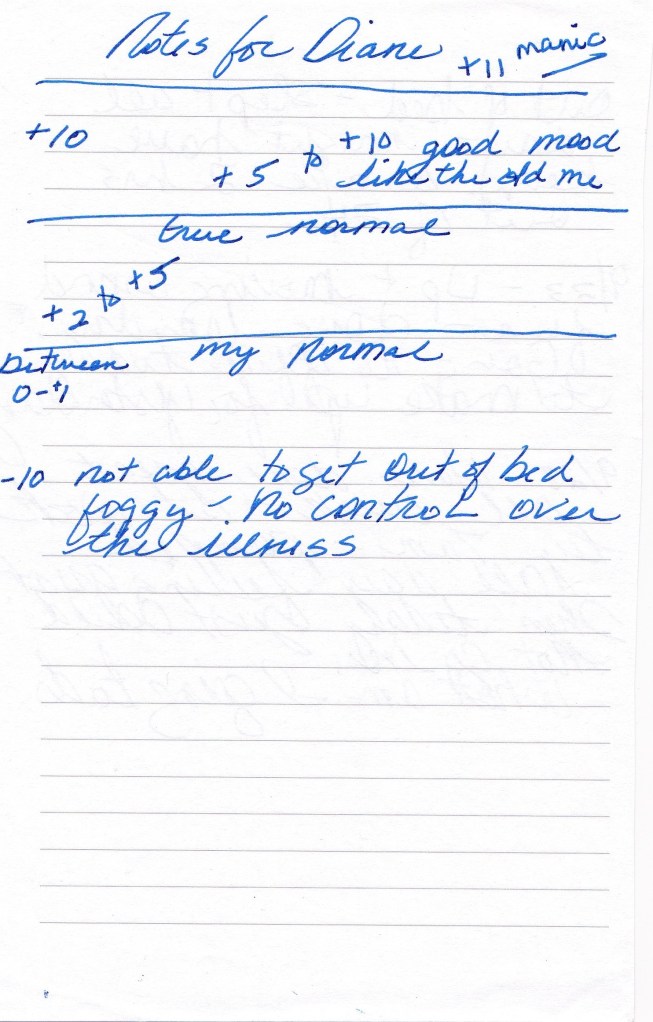 Notes for Diane +11 manic
+10
+5 to +10 good mood
like the old me
true normal
+2 to +5
my normal
between
0-+1
-10 not able to get out of bed
foggy - No control over
the illniss